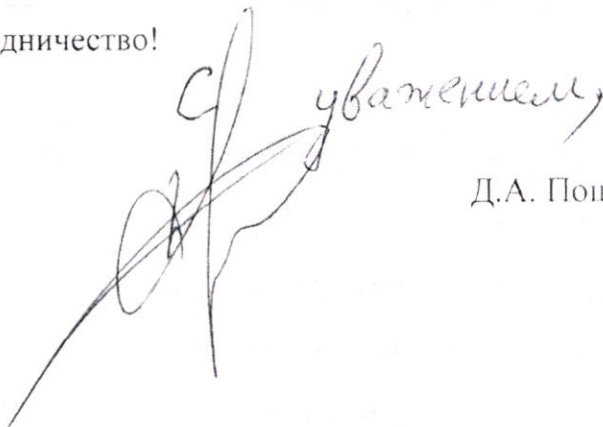 дничество!
С уважением,
Д.А. Поп